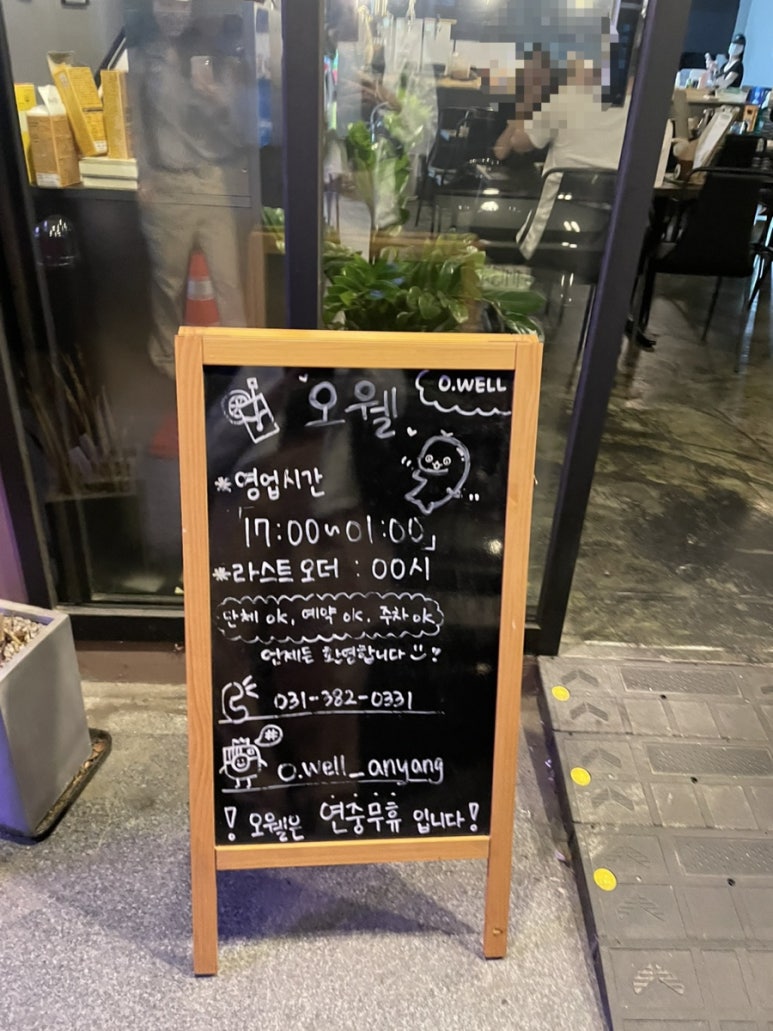 오웰
O.WELL
*영업시간
「17:00~01:00」
*라스트오더 : 00시
단체 ok, 예약 ok, 주차 ok
언제든 환영합니다
031-382-0331
#
o.well_anyang
! 오웰은 연중무휴 입니다!